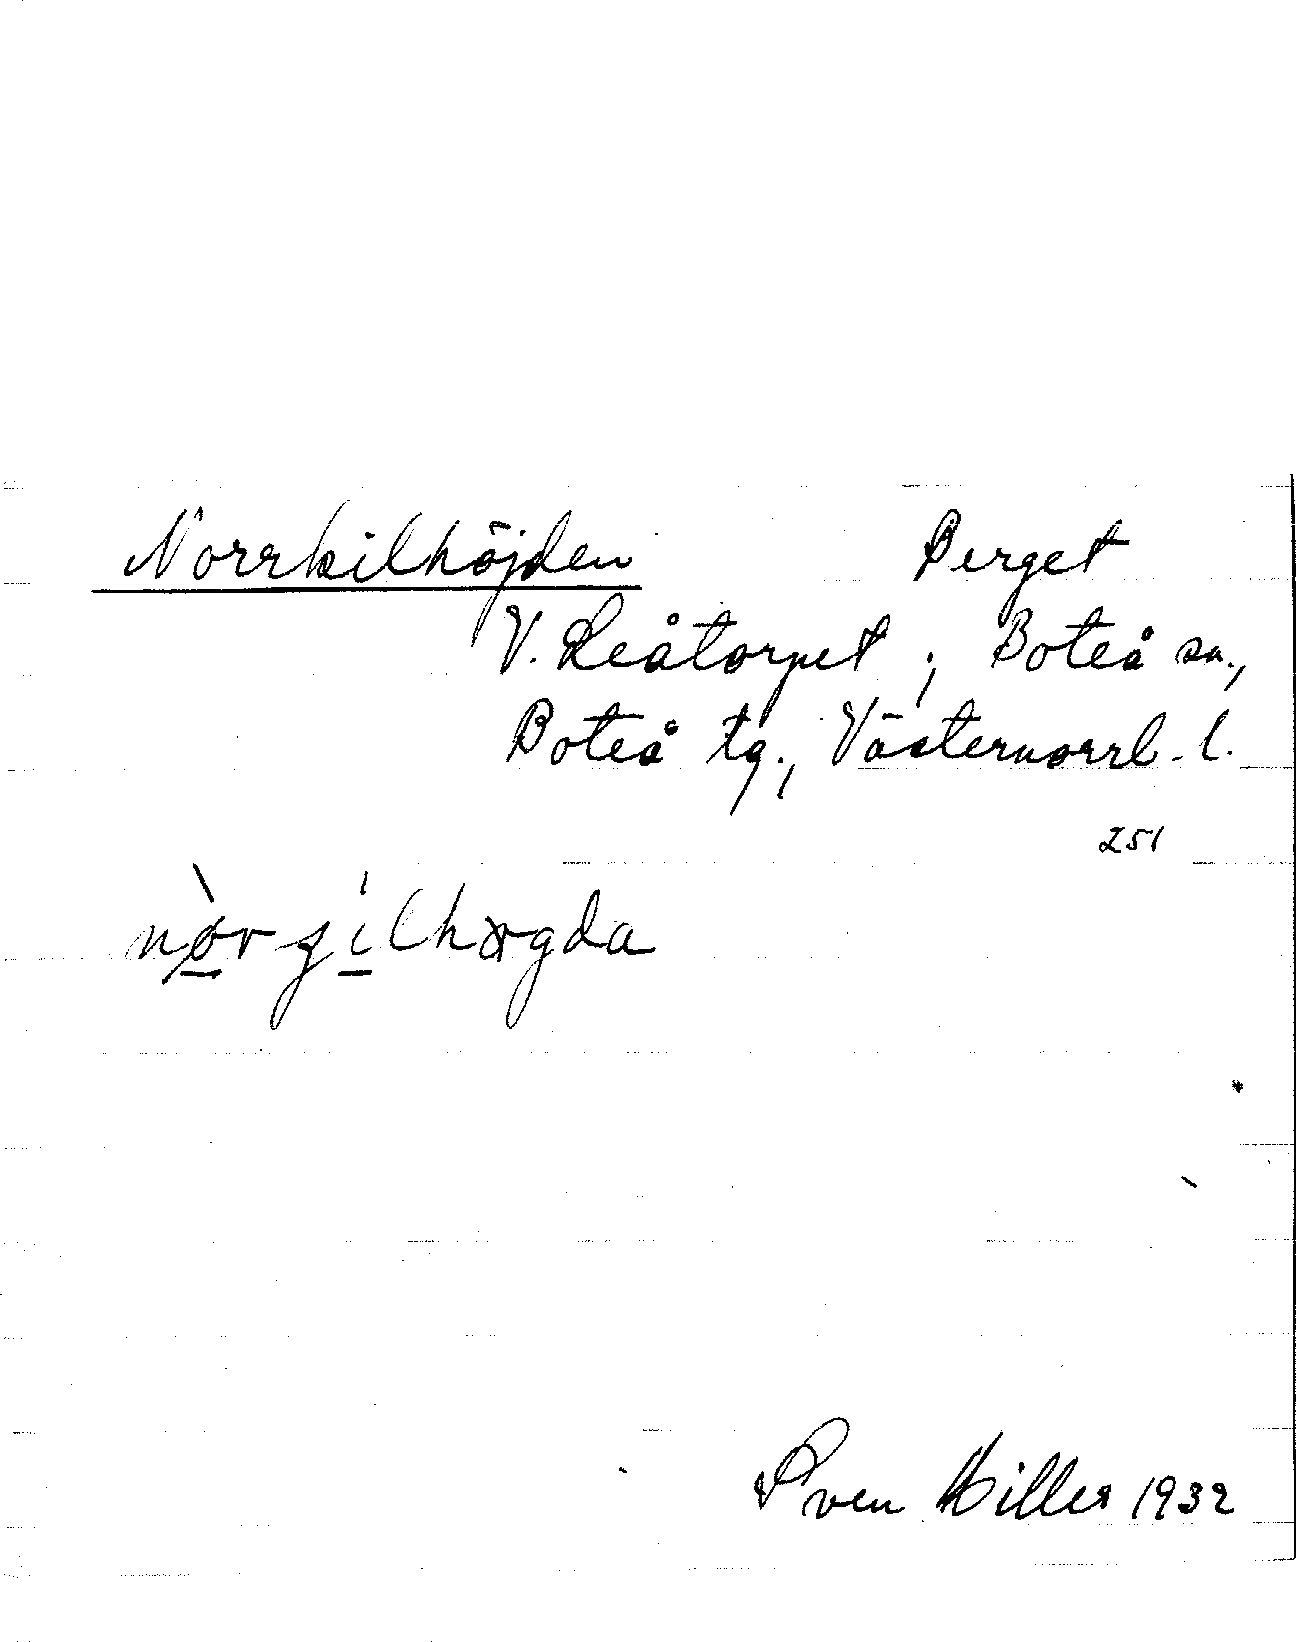 Norrkilhöjden Berget
V. Leåtorpet ; Boteå sn.,
Boteå tg., Västernorrl. l.
251
Sven Hiller 1932